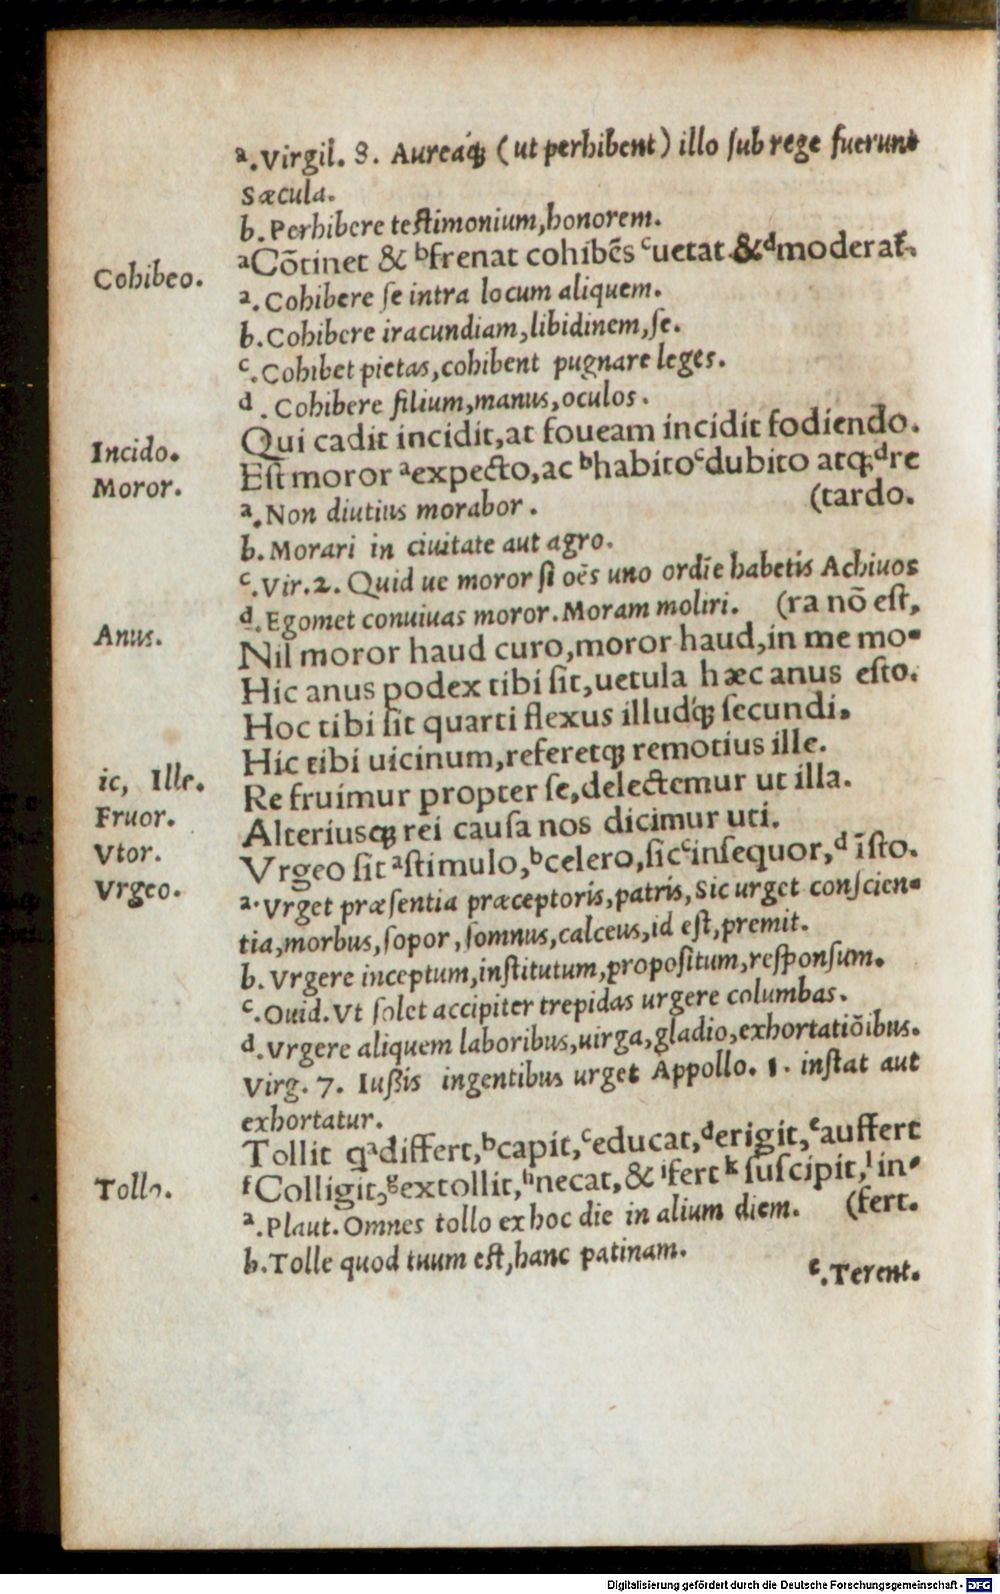 a. Virgil. 8. Aureaq́ꝫ (ut perhibent) illo ſub rege fuerunt
Sæcula.
b. Perhibere teſtimonium, honorem.
Cohibeo. ᵃCõtinet & ᵇfrenat cohibẽs ᶜuetat & ᵈmoderat̃.
a. Cohibere ſe intra locum aliquem.
b. Cohibere iracundiam, libidinem, ſe.
c. Cohibet pietas, cohibent pugnare leges.
d. Cohibere filium, manus, oculos.
Incido. Qui cadit incidit, at foueam incidit fodiendo.
Moror. Eſt moror ᵃexpecto, ac ᵇhabito ᶜdubito atqꝫ ᵈre
a. Non diutius morabor. (tardo.
b. Morari in ciuitate aut agro.
c. Vir. 2. Quid ue moror ſi oẽs uno ordĩe habetis Achiuos
d. Egomet conuiuas moror. Moram moliri. (ra nõ eſt,
Anus. Nil moror haud curo, moror haud, in me mo-
Hic anus podex tibi ſit, uetula hæc anus eſto.
Hoc tibi ſit quarti flexus illudq́ꝫ ſecundi.
Hic tibi uicinum, referetqꝫ remotius ille.
ic, Ille. Re fruimur propter ſe, delectemur ut illa.
Fruor. Alteriusqꝫ rei cauſa nos dicimur uti.
Vtor. Vrgeo ſit ᵃſtimulo, ᵇcelero, ſic ᶜinſequor, ᵈ ĩſto.
Vrgeo. a. Vrget præſentia præceptoris, patris, Sic urget conſcien-
tia, morbus, ſopor, ſomnus, calceus, id eſt, premit.
b. Vrgere inceptum, inſtitutum, propoſitum, reſponſum.
c. Ouid. Vt ſolet accipiter trepidas urgere columbas.
d. Vrgere aliquem laboribus, uirga, gladio, exhortatiõibus.
Virg. 7. Iußis ingentibus urget Appollo. 1. inſtat aut
exhortatur.
Tollit q ᵃdiffert, ᵇcapit, ᶜeducat, ᵈerigit, ᵉauffert
Tollo. ᶠColligit, ᵍextollit, ʰnecat, & ⁱfert ᵏ ſuſcipit, ˡin-
a. Plaut. Omnes tollo ex hoc die in alium diem. (fert.
b. Tolle quod tuum eſt, hanc patinam.
c. Terent.
Digitalisierung gefördert durch die Deutsche Forschungsgemeinschaft - DFG